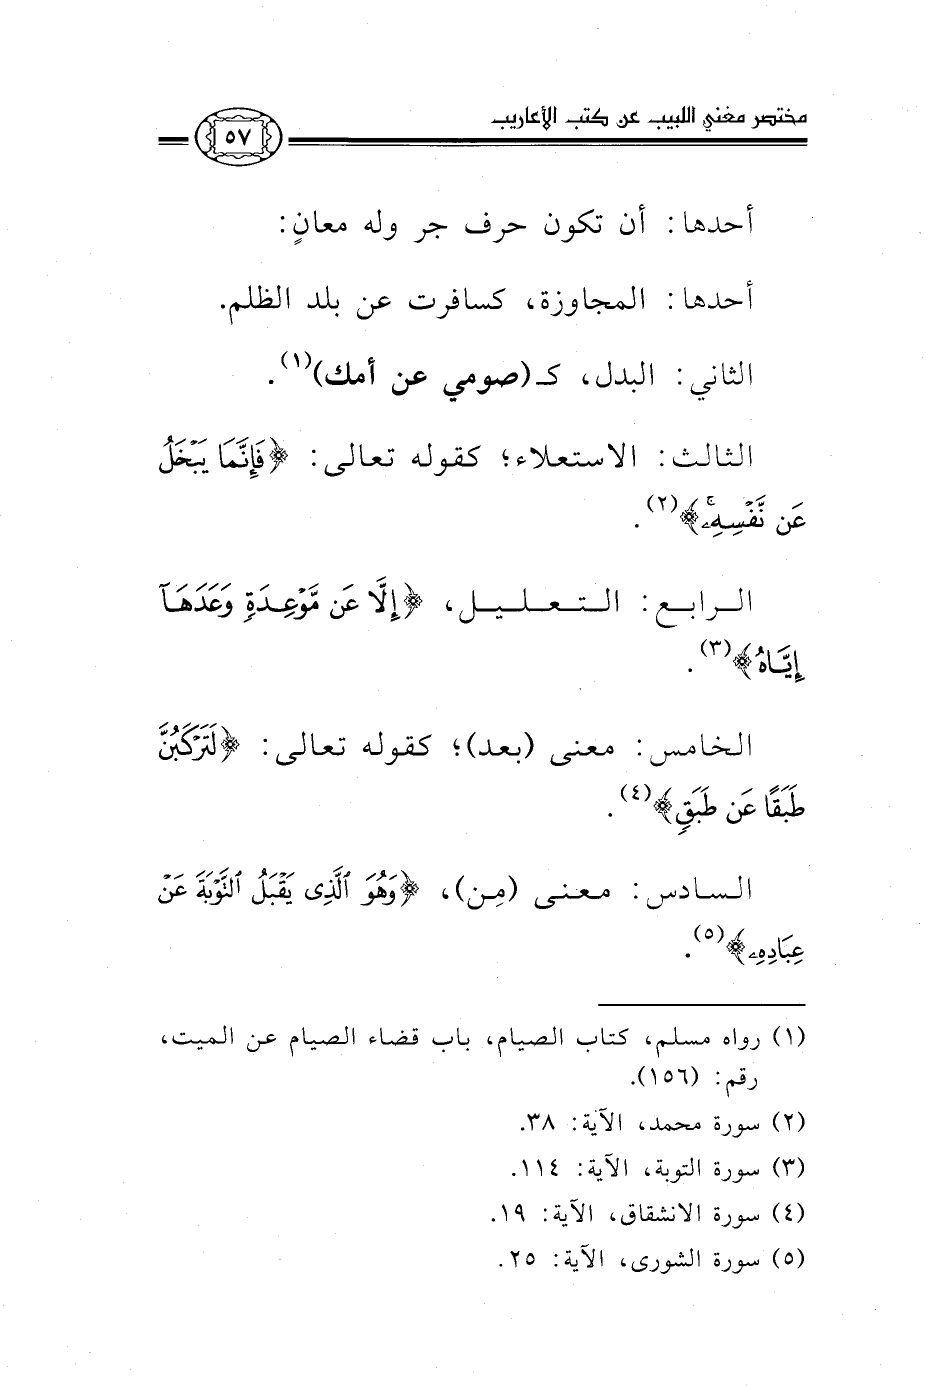 مختصر مغني اللبيب عن كتب الأعاريب
٥٧
أحدها: أن تكون حرف جر وله معانٍ:
أحدها: المجاوزة، كسافرت عن بلد الظلم.
الثاني: البدل، كـ(صومي عن أمك)(١).
الثالث: الاستعلاء؛ كقوله تعالى: ﴿فَإِنَّمَا يَبْخَلُ
عَن نَّفْسِهِۦۚ﴾(٢).
الرابع: التعليل، ﴿إِلَّا عَن مَّوْعِدَةٍ وَعَدَهَآ
إِيَّاهُ﴾(٣).
الخامس: معنى (بعد)؛ كقوله تعالى: ﴿لَتَرْكَبُنَّ
طَبَقًا عَن طَبَقٍ﴾(٤).
السادس: معنى (مِن)، ﴿وَهُوَ ٱلَّذِى يَقْبَلُ ٱلتَّوْبَةَ عَنْ
عِبَادِهِۦ﴾(٥).
(١) رواه مسلم، كتاب الصيام، باب قضاء الصيام عن الميت،
رقم: (١٥٦).
(٢) سورة محمد، الآية: ٣٨.
(٣) سورة التوبة، الآية: ١١٤.
(٤) سورة الانشقاق، الآية: ١٩.
(٥) سورة الشورى، الآية: ٢٥.